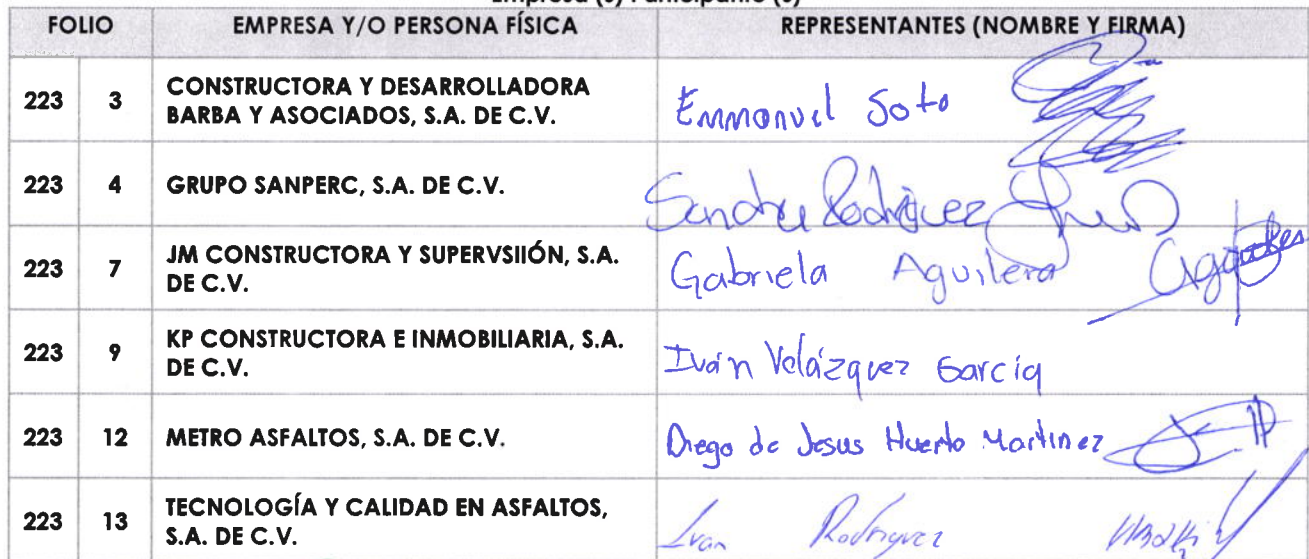 Empresa (s) Participante (s)
FOLIO EMPRESA Y/O PERSONA FÍSICA REPRESENTANTES (NOMBRE Y FIRMA)
223 3 CONSTRUCTORA Y DESARROLLADORA
BARBA Y ASOCIADOS, S.A. DE C.V. Emmanuel Soto
223 4 GRUPO SANPERC, S.A. DE C.V. Sandra Rodriguez
223 7 JM CONSTRUCTORA Y SUPERVSIIÓN, S.A.
DE C.V. Gabriela Aguilera
223 9 KP CONSTRUCTORA E INMOBILIARIA, S.A.
DE C.V. Iván Velázquez García
223 12 METRO ASFALTOS, S.A. DE C.V. Diego de Jesus Huerto Martinez
223 13 TECNOLOGÍA Y CALIDAD EN ASFALTOS,
S.A. DE C.V. Ivan Rodriguez